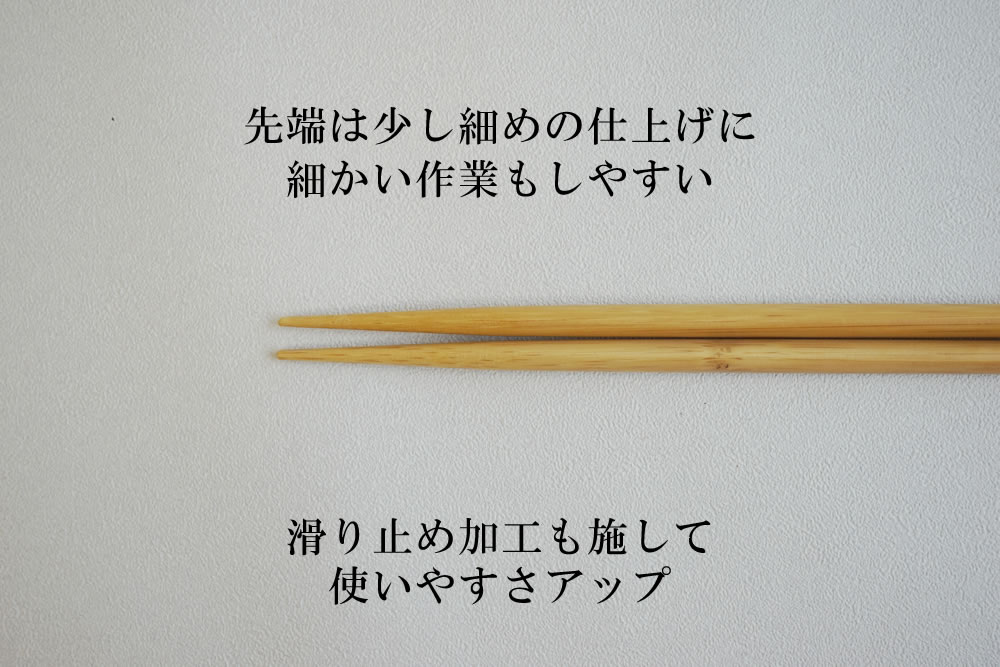 先端は少し細めの仕上げに
細かい作業もしやすい
滑り止め加工も施して
使いやすさアップ